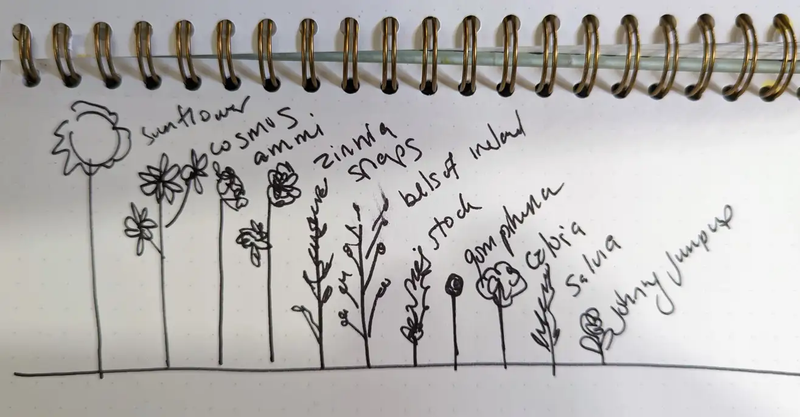 sunflower
cosmos
ammi
zinnia
snaps
bells of ireland
stock
gomphrena
Salvia
Johnny Jumpup